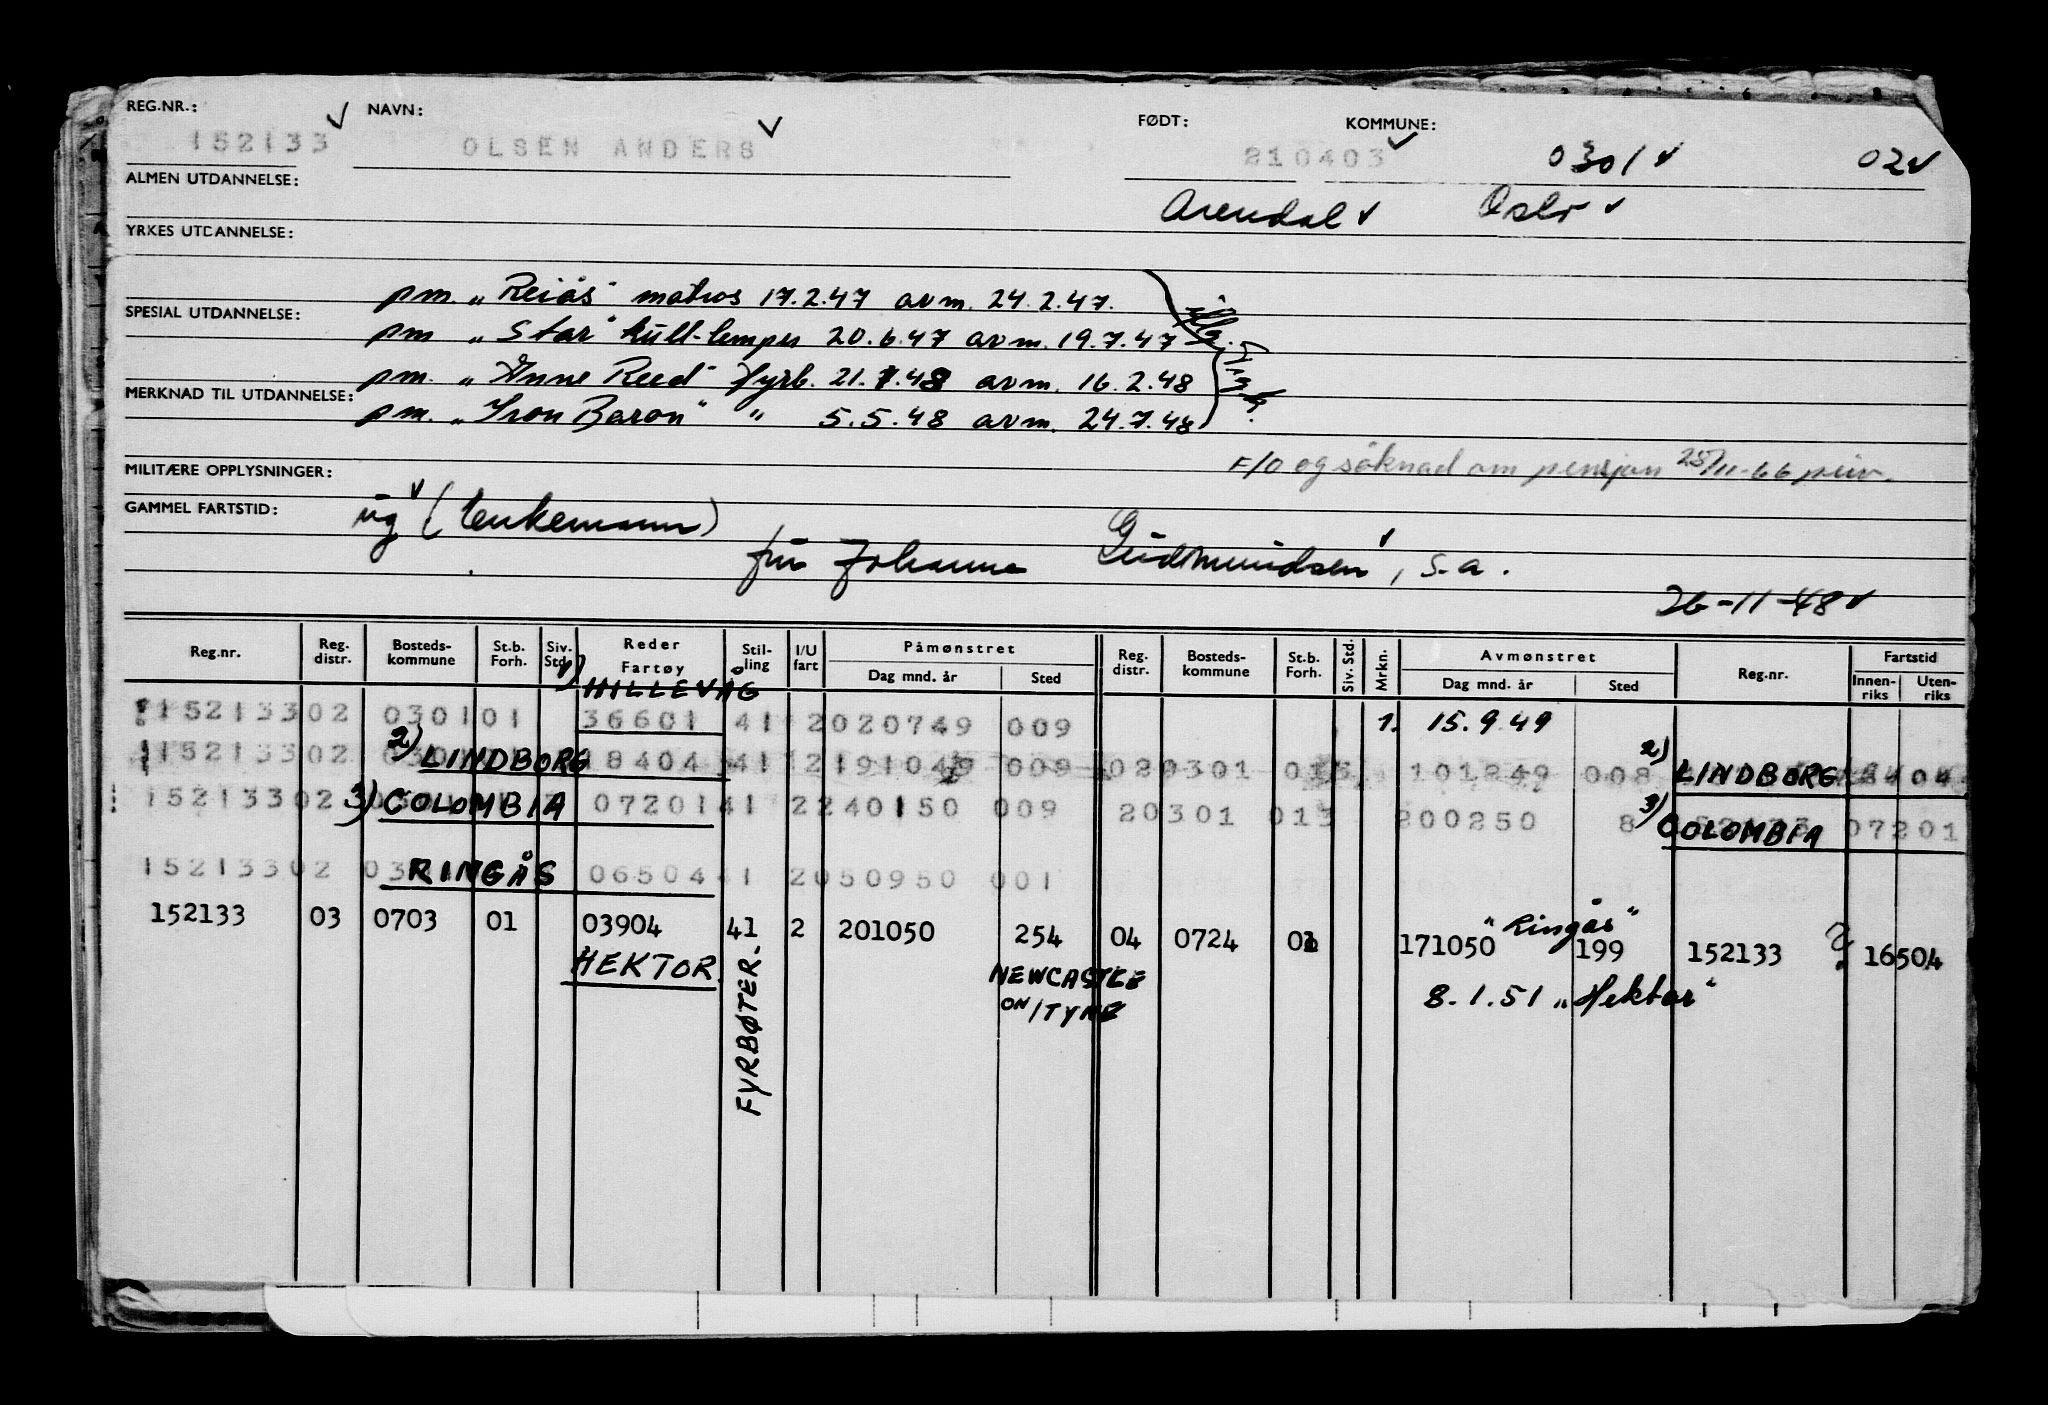 REG.NR.: NAVN: FØDT: KOMMUNE:
152133 OLSEN ANDERS 210403 0301 02
ALMEN UTDANNELSE:
Arendal Oslo
YRKES UTDANNELSE:
pm. „Reiås" matros 17.2.47 avm. 24.2.47.
SPESIAL UTDANNELSE:
pm „Star" kull-lemper 20.6.47 avm. 19.7.47
pm. „Anne Reed" fyrb. 21.1.48 avm. 16.2.48
MERKNAD TIL UTDANNELSE:
pm. „Iron Baron" " 5.5.48 avm. 24.7.48
F/O og søknad om pensjon 25/11-66
MILITÆRE OPPLYSNINGER:
GAMMEL FARTSTID:
ug (enkemann)
Gudmundsen, s.a.
26-11-48
Reg.nr. Reg. distr. Bosteds-kommune St.b. Forh. Siv. Std. Reder Fartøy Stil-ling I/U fart Påmønstret Dag mnd. år Sted Reg. distr. Bosteds-kommune St.b. Forh. Siv. Std. Mrkn. Avmønstret Dag mnd. år Sted Reg.nr. Fartstid Innen-riks Uten-riks
1) HILLEVÅG
15213302 030101 36601 41 2020749 009 1. 15.9.49
15213302 2) LINDBORG 18404 41 2191049 009 020301 013 101249 008 2) LINDBORG 8404
15213302 3) COLOMBIA 07201 41 2240150 009 20301 013 200250 8 3) COLOMBIA 07201
15213302 RINGÅS 06504 41 2050950 001
"Ringås"
152133 03 0703 01 03904 41 2 201050 254 04 0724 01 171050 199 152133 ? 16504
HEKTOR. FYRBØTER. NEWCASTLE ON/TYNE 8.1.51 „Hektor"